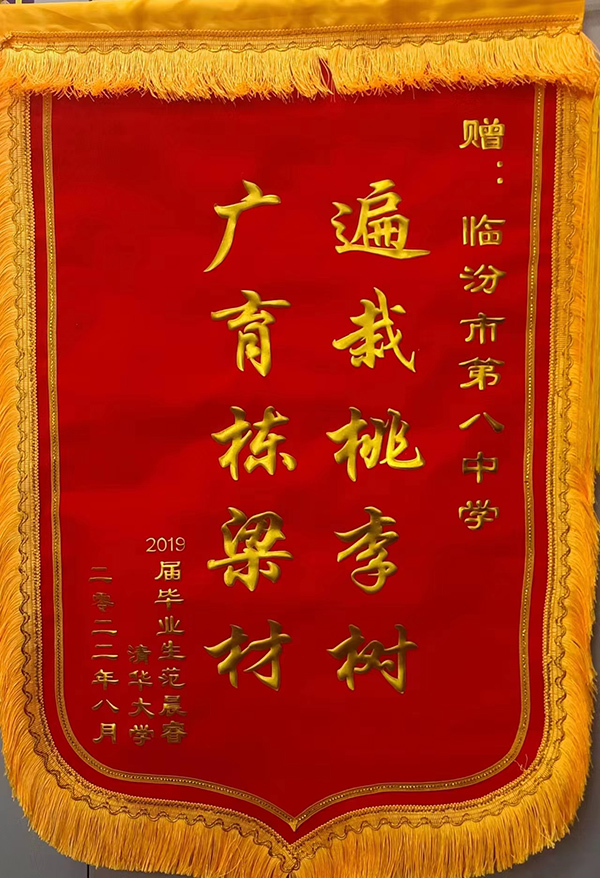 赠：临汾市第八中学
遍栽桃李树
广育栋梁材
2019届毕业生范晨睿
清华大学
二零二二年八月